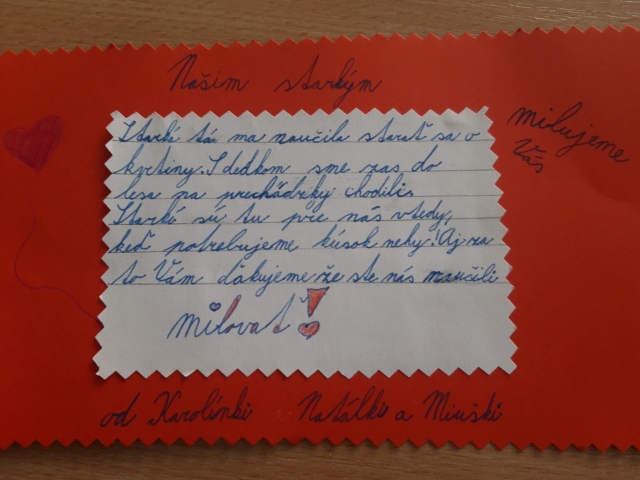 Našim starkým
milujeme
Vás
Starká tá ma naučila starať sa o
kvetiny. S dedkom sme zas do
lesa na prechádzky chodili.
Starkí sú tu pre nás vtedy,
keď potrebujeme kúsok nehy! Aj za
to Vám ďakujeme že ste nás naučili
milovať!
od Karolínki Natálki a Miuški